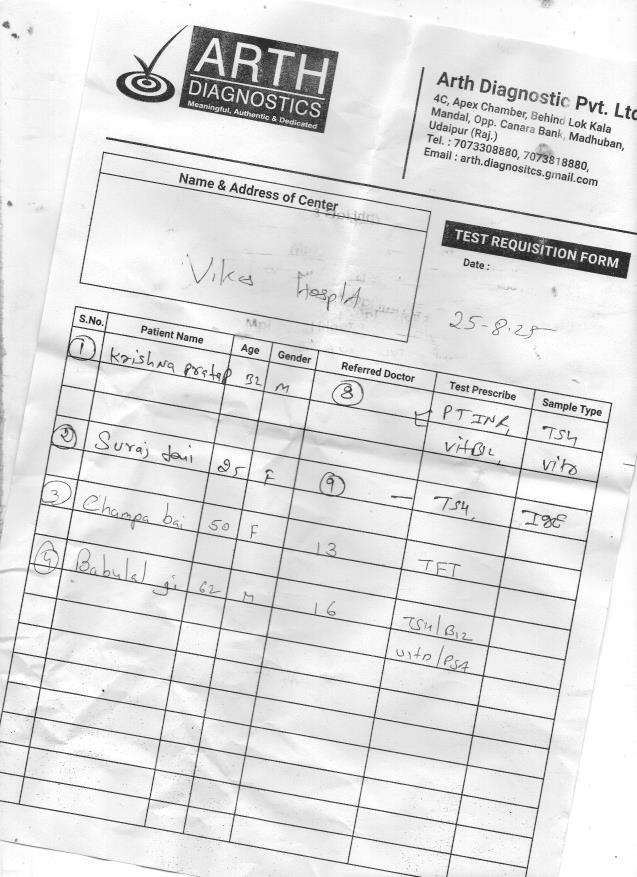 ARTH
DIAGNOSTICS
Meaningful, Authentic & Dedicated
Arth Diagnostic Pvt. Ltd
4C, Apex Chamber, Behind Lok Kala
Mandal, Opp. Canara Bank, Madhuban,
Udaipur (Raj.)
Tel. : 7073308880, 7073818880,
Email : arth.diagnositcs.gmail.com
Name & Address of Center
Vikas Hosptal
TEST REQUISITION FORM
Date :
25-8-25
S.No. Patient Name Age Gender Referred Doctor Test Prescribe Sample Type
1 Krishna pratap 32 M 8 PTINR, TSH
VitB12, VitD
2 Suraj bai 25 F 9 - TSH, IgE
3 Champa bai 50 F 13 TFT
4 Babulal ji 62 M 16 TSH/B12
VitD/PSA